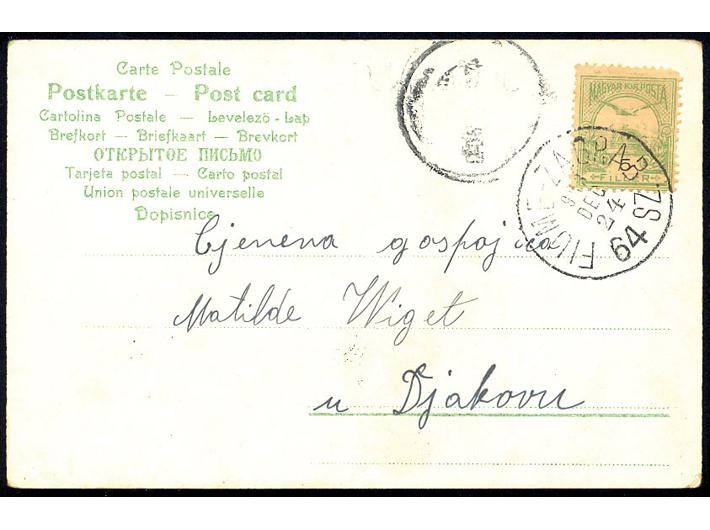 Carte Postale
Postkarte — Post card
Cartolina Postale — Levelező-Lap
Brefkort — Briefkaart — Brevkort
ОТКРЫТОЕ ПИСЬМО
Tarjeta postal — Carto postal
Union postale universelle
Dopisnice
MAGYAR KIR. POSTA
FILLÉR
FIUME-ZÁGRÁB
DEC
24
64 SZ
Cjenena gospojica
Matilde Wiget
u Djakovu